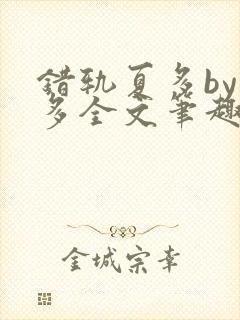 错轨夏多by
多全文笔趣
金城宗幸